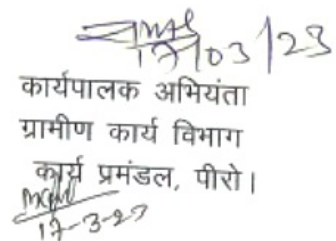 17/03/23
कार्यपालक अभियंता
ग्रामीण कार्य विभाग
कार्य प्रमंडल, पीरो।
17-3-23